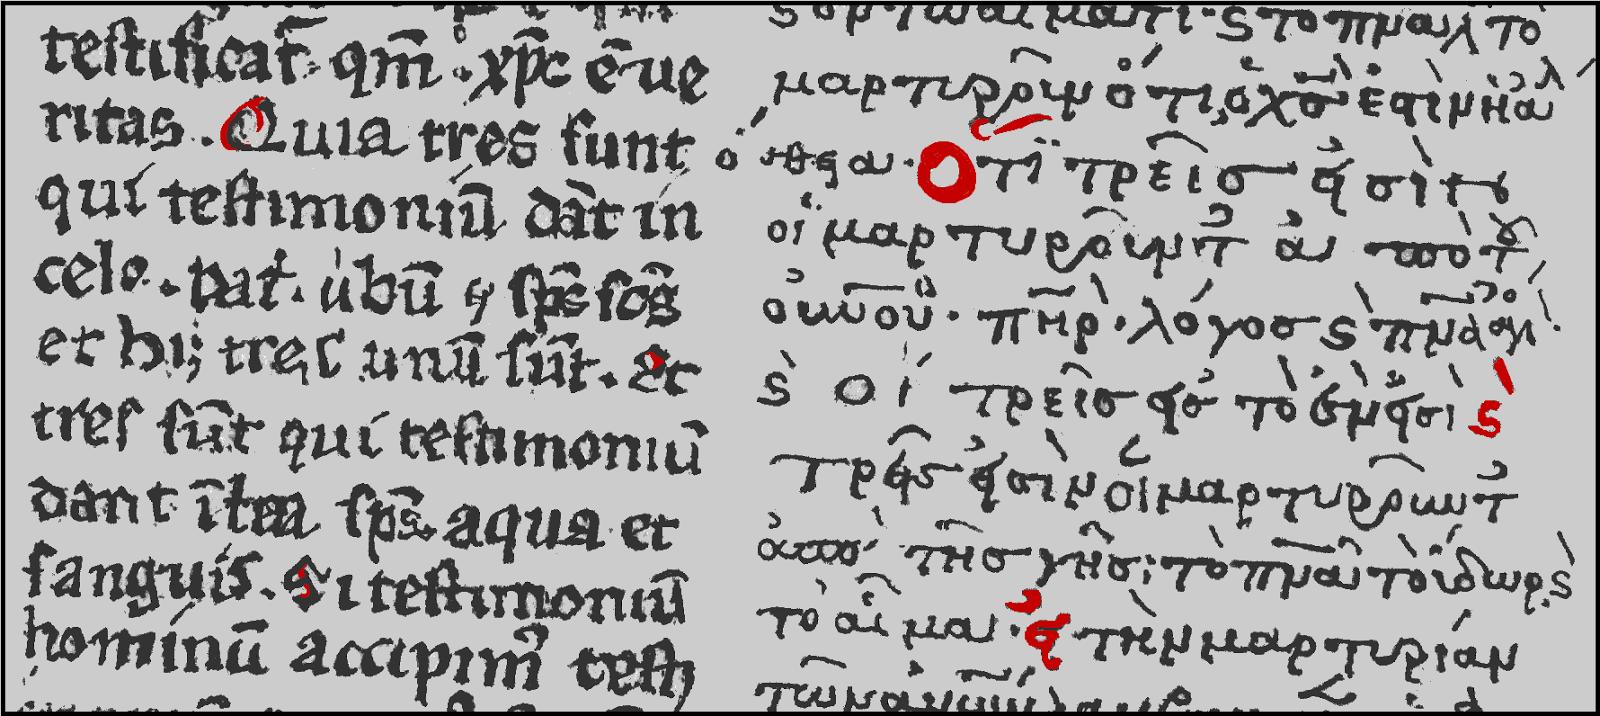 testificat̄. qm̄. xp̄c ē ue
ritas. Quia tres sunt
qui testimoniū dāt in
celo. pat̄. ubū ⁊ sp̄s sc̄s
et hi; tres unū sūt. Et
tres sūt qui testimoniū
dant ī tr̄a sp̄s aqua et
sanguis. Si testimoniū
hominū accipim᾽ testi
αἵματι· ϛ τὸ πν̄α τὸ
μαρτυροῦν ὅτι ὁ χ̄σ ἐστὶν ἡ ἀλ
ήθεια· Ὅτι τρεῖς εἰσὶν
οἱ μαρτυροῦντ̄ ἀπὸ τοῦ
οὐνοῦ· πη̄ρ· λόγος ϛ πν̄α ἅγι·
ϛ οἱ τρεῖς εἰς τὸ ἕν εἰσι ϛ
τρεῖς εἰσὶν οἱ μαρτυροῦντ̄
ἀπὸ τῆς γῆς· τὸ πν̄α τὸ ὕδωρ ϛ
τὸ αἷμα· εἰ τὴν μαρτυρίαν
τῶν